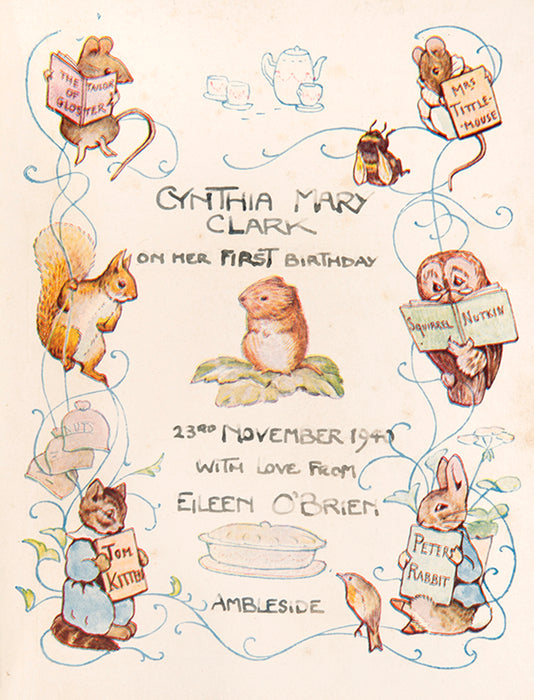 THE TAILOR
OF
GLOSTER
MRS
TITTLE-
MOUSE
CYNTHIA MARY
CLARK
ON HER FIRST BIRTHDAY
SQUIRREL NUTKIN
23RD NOVEMBER 1940
WITH LOVE FROM
NUTS
EILEEN O'BRIEN
TOM
KITTEN
PETER
RABBIT
AMBLESIDE